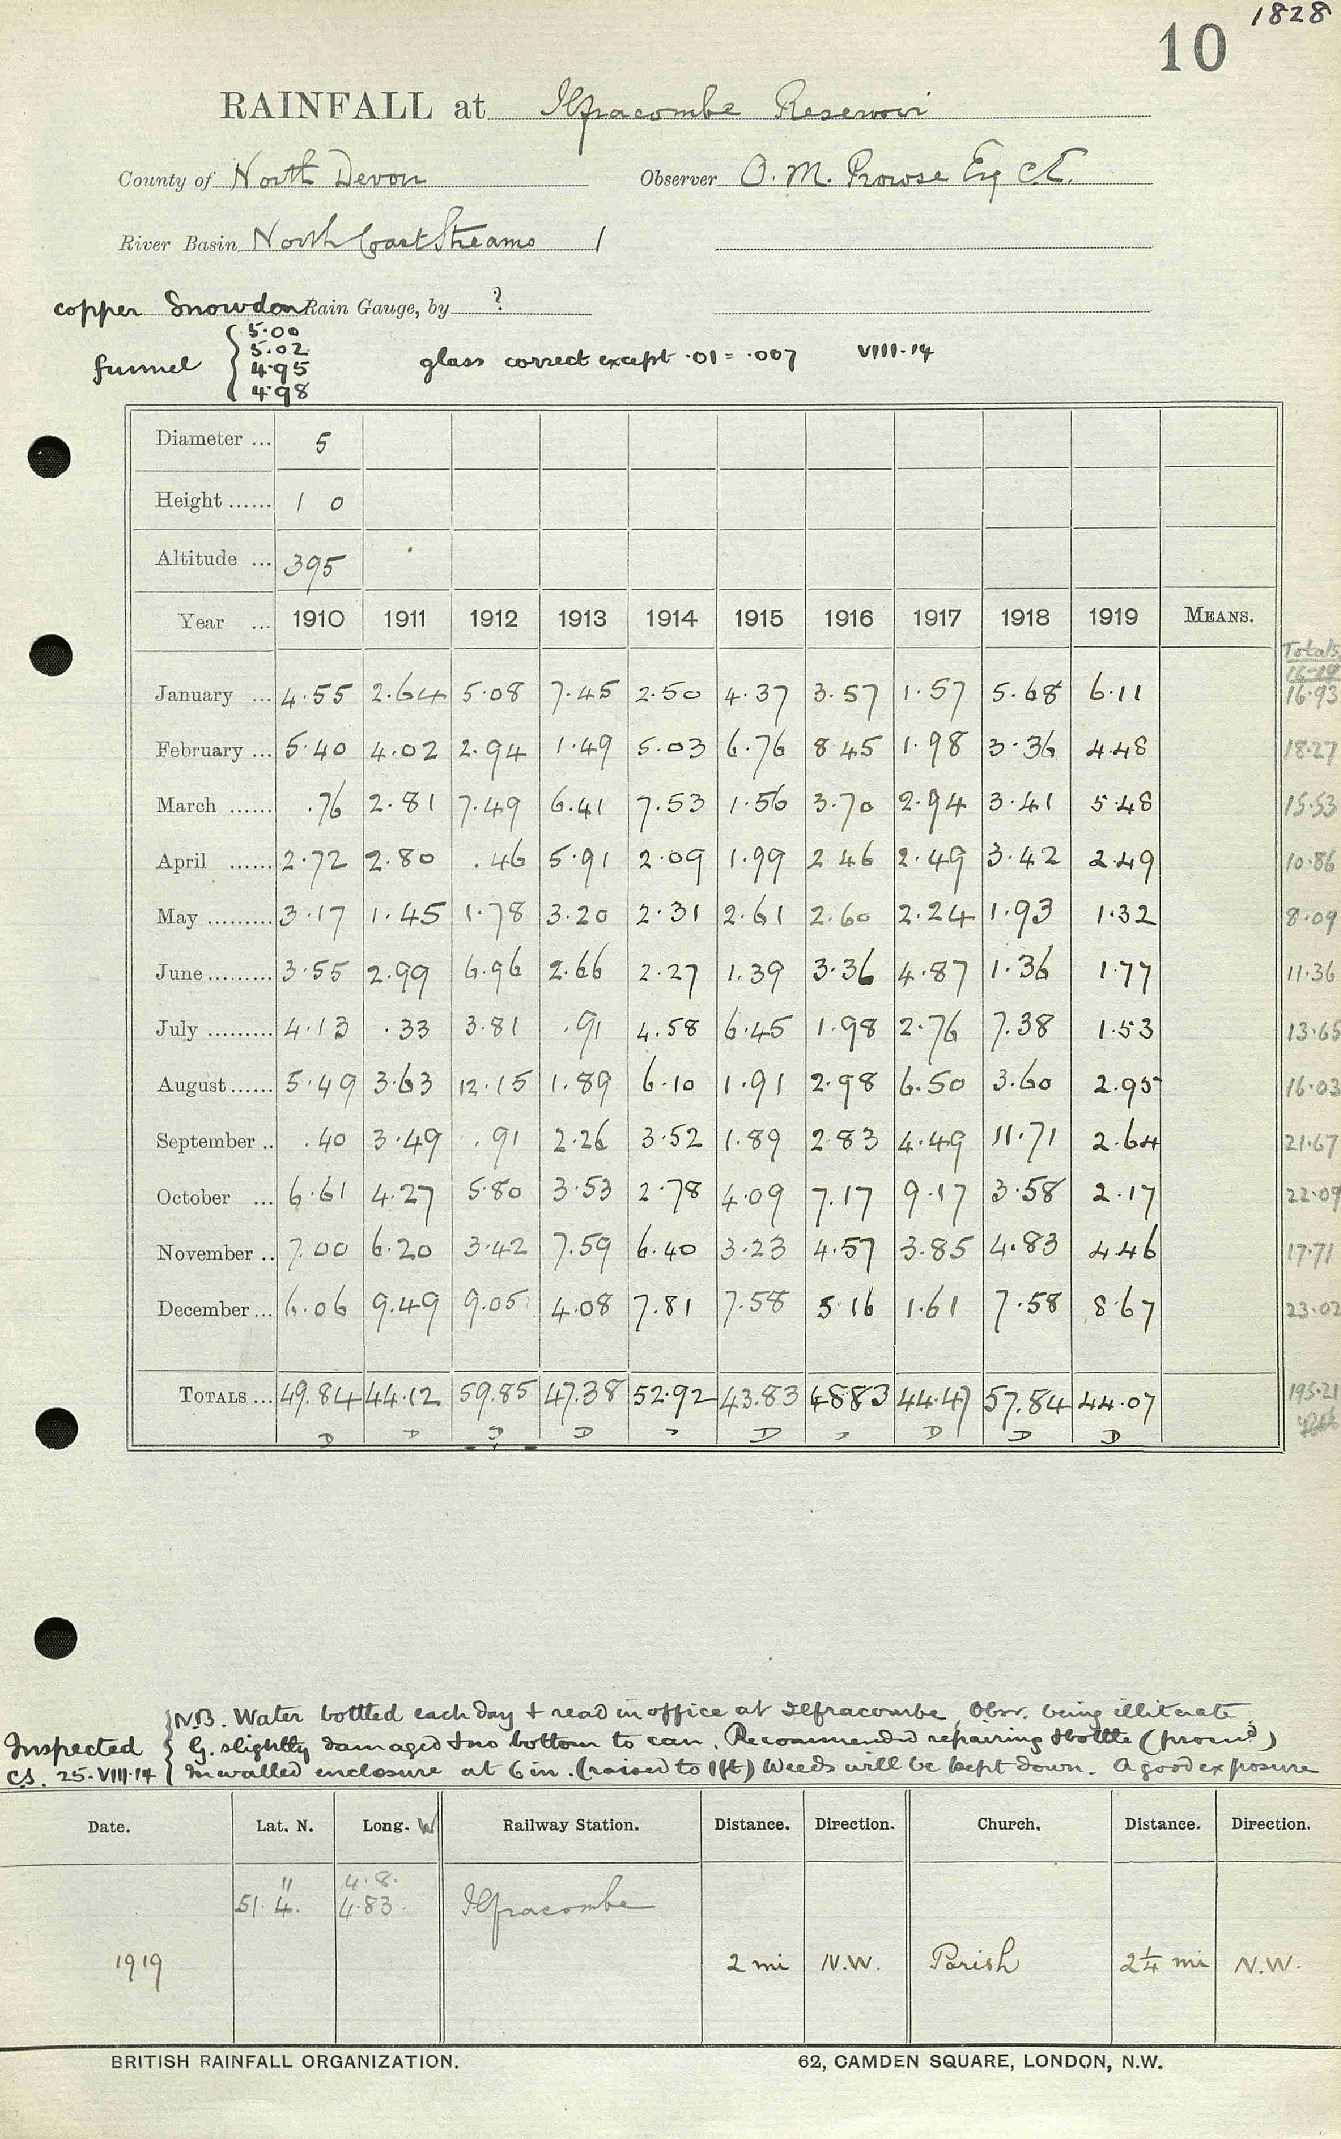 1828
10
RAINFALL at Ilfracombe Reservoir
County of North Devon Observer O. M. Prowse Esq C.E.
River Basin North Coast Streams 1
copper Snowdon Rain Gauge, by ?
funnel { 5.00 5.02 4.95 4.98 glass correct except .01 = .007 VIII.14
Diameter ... 5
Height ...... 1 0
Altitude ... 395
Year ... 1910 1911 1912 1913 1914 1915 1916 1917 1918 1919 MEANS. Totals
January ... 4.55 2.64 5.08 7.45 2.50 4.37 3.57 1.57 5.68 6.11 16.93
February ... 5.40 4.02 2.94 1.49 5.03 6.76 8.45 1.98 3.36 4.48 18.27
March ...... .76 2.81 7.49 6.41 7.53 1.56 3.70 2.94 3.41 5.48 15.53
April ...... 2.72 2.80 .46 5.91 2.09 1.99 2.46 2.49 3.42 2.49 10.86
May ......... 3.17 1.45 1.78 3.20 2.31 2.61 2.60 2.24 1.93 1.32 8.09
June ......... 3.55 2.99 6.96 2.66 2.27 1.39 3.36 4.87 1.36 1.77 11.36
July ......... 4.13 .33 3.81 .91 4.58 6.45 1.98 2.76 7.38 1.53 13.65
August ...... 5.49 3.63 12.15 1.89 6.10 1.91 2.98 6.50 3.60 2.95 16.03
September .. .40 3.49 .91 2.26 3.52 1.89 2.83 4.49 11.71 2.64 21.67
October ... 6.61 4.27 5.80 3.53 2.78 4.09 7.17 9.17 3.58 2.17 22.09
November .. 7.00 6.20 3.42 7.59 6.40 3.23 4.57 3.85 4.83 4.46 17.71
December ... 6.06 9.49 9.05 4.08 7.81 7.58 5.16 1.61 7.58 8.67 23.02
TOTALS ... 49.84 44.12 59.85 47.38 52.92 43.83 48.83 44.47 57.84 44.07 195.21
D D D D D D D D D D
N.B. Water bottled each day & read in office at Ilfracombe Obsr. being illiterate.
Inspected { G. slightly damaged & no bottom to can. Recommended repairing & bottle (prom'd)
C.S. 25.VIII.14 In walled enclosure at 6 in. (raised to 1ft) Weeds will be kept down. A good exposure
Date. Lat. N. Long. W Railway Station. Distance. Direction. Church. Distance. Direction.
" 4.8.
51. 4. 4.83. Ilfracombe
1919 2 mi N.W. Parish 2¼ mi N.W.
BRITISH RAINFALL ORGANIZATION. 62, CAMDEN SQUARE, LONDON, N.W.